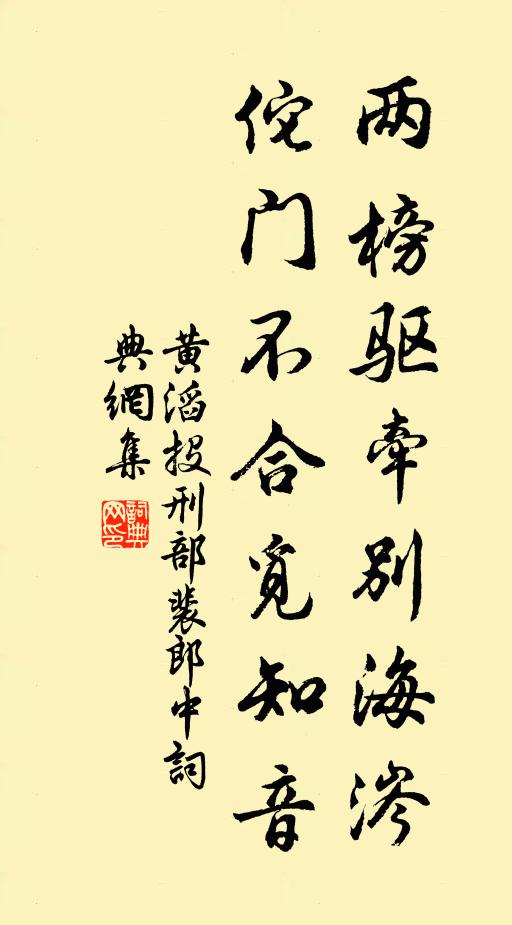 两榜驱牵别海涔
佗门不合觅知音
黄滔投刑部裴郎中詞
典網集
詞典
网印